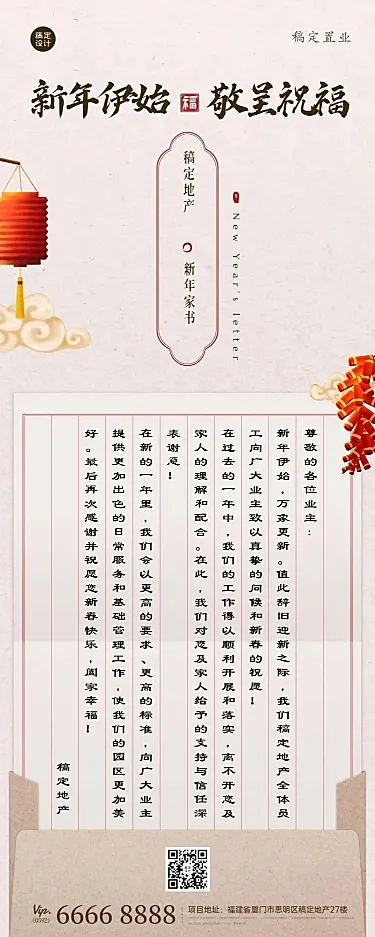 稿定
设计
稿定置业
新年伊始 福 敬呈祝福
稿定地产
新年家书
New Year's letter
尊敬的各位业主：
新年伊始，万家更新。值此辞旧迎新之际，我们稿定地产全体员
工向广大业主致以真挚的问候和新春的祝愿！
在过去的一年中，我们的工作得以顺利开展和落实，离不开您及
家人的理解和配合。在此，我们对您及家人给予的支持与信任深
表谢意！
在新的一年里，我们会以更高的要求、更高的标准，向广大业主
提供更加出色的日常服务和基础管理工作，使我们的园区更加美
好。最后再次感谢并祝愿您新春快乐，阖家幸福！
稿定地产
Vip.
(0592)
6666 8888
项目地址：福建省厦门市思明区稿定地产27楼